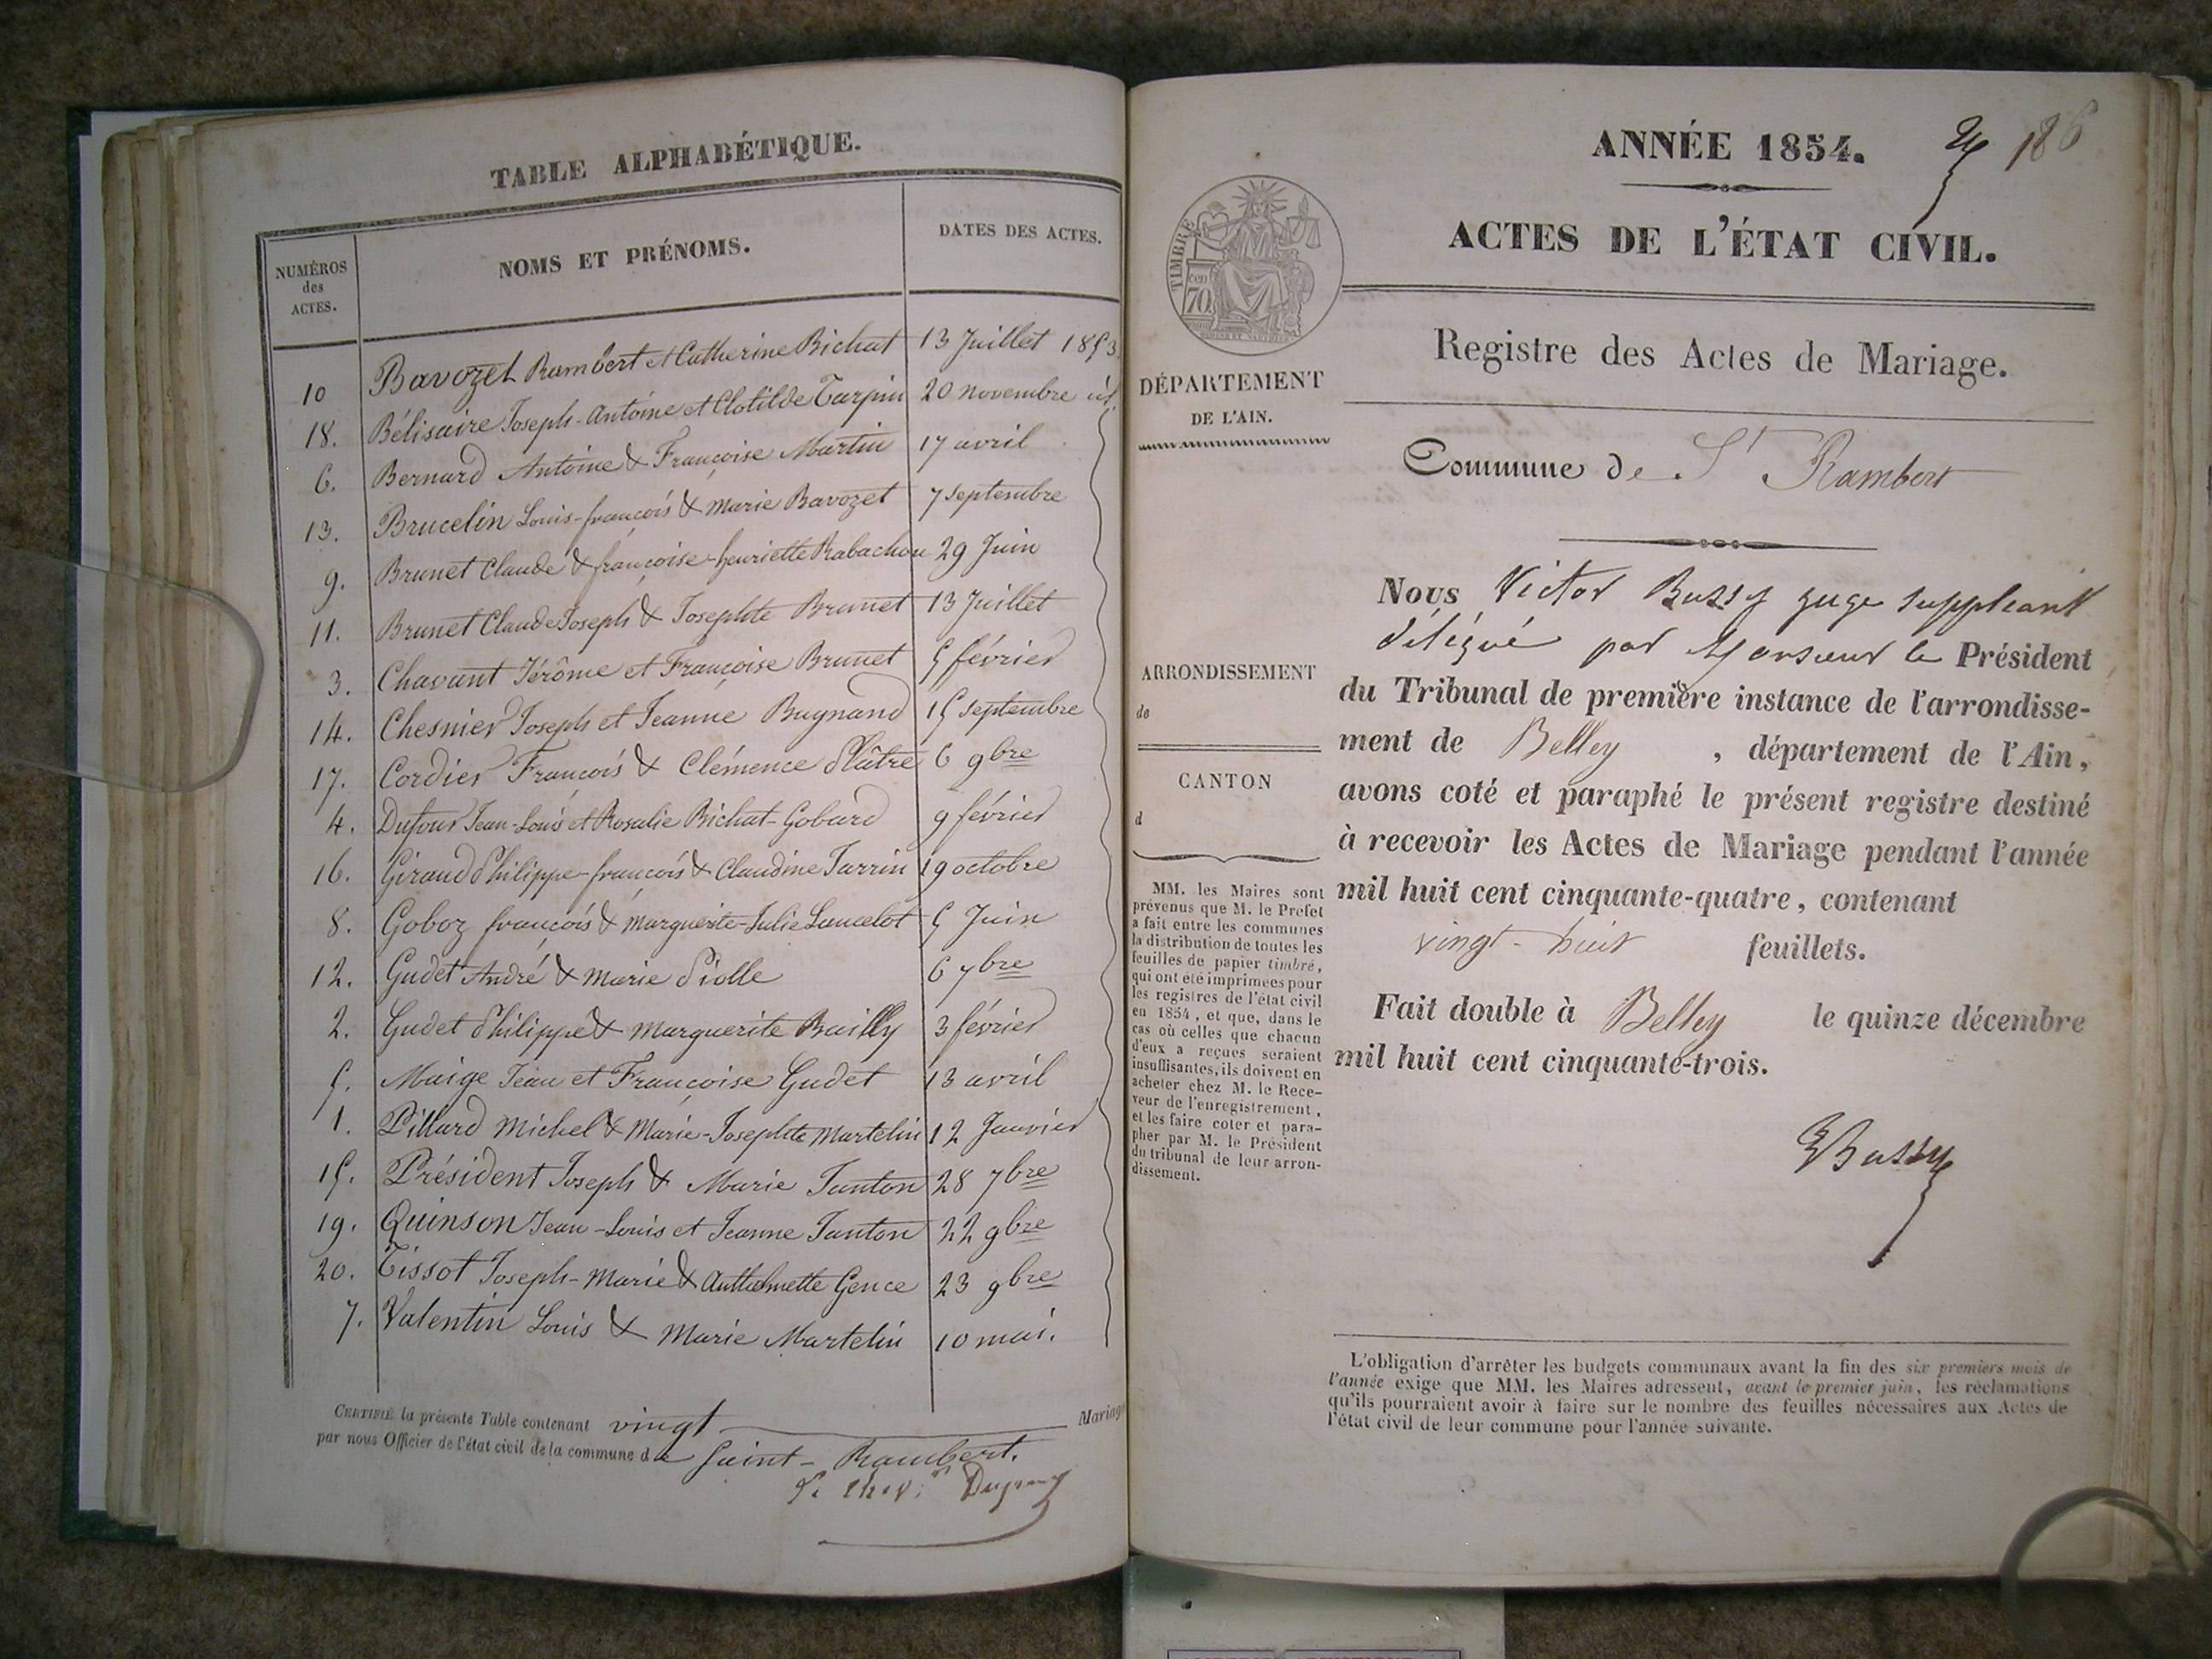 TABLE ALPHABÉTIQUE.
NUMÉROS
des
ACTES.
NOMS ET PRÉNOMS.
DATES DES ACTES.
10 Bavozet Rambert et Catherine Bichat 13 Juillet 1853
18. Bélisaire Joseph-Antoine et Clotilde Tarpin 20 novembre id
6. Bernard Antoine & Françoise Martin 17 avril
13. Brucelin Louis-françois & Marie Bavozet 7 septembre
9. Brunet Claude & françoise-henriette Rabachou 29 Juin
11. Brunet Claude Joseph & Josephte Brunet 13 Juillet
3. Chavant Jérôme et Françoise Brunet 5 février
14. Chesnier Joseph et Jeanne Buynand 15 septembre
17. Cordier François & Clémence Plâtre 6 9bre
4. Dufour Jean-Louis et Rosalie Bichat-Gobard 9 février
16. Giraud Philippe-françois & Claudine Jarrin 19 octobre
8. Goboz françois & Marguerite-Julie Lancelot 5 Juin
12. Gudet André & Marie Piolle 6 7bre
2. Gudet Philippe & Marguerite Bailly 3 février
5. Maige Jean et Françoise Gudet 13 avril
1. Pillard Michel & Marie-Josephte Martelin 12 Janvier
15. Président Joseph & Marie Janton 28 7bre
19. Quinson Jean-Louis et Jeanne Janton 22 9bre
20. Tissot Joseph-Marie & Anthelmette Gence 23 9bre
7. Valentin Louis & Marie Martelin 10 mai.
CERTIFIÉ la présente Table contenant vingt Mariag
par nous Officier de l'état civil de la commune de Saint-Rambert.
Dupuy
ANNÉE 1854. 186
ACTES DE L'ÉTAT CIVIL.
TIMBRE
70
Registre des Actes de Mariage.
DÉPARTEMENT
DE L'AIN.
Commune de St Rambert
ARRONDISSEMENT
de
CANTON
d
MM. les Maires sont
prévenus que M. le Préfet
a fait entre les communes
la distribution de toutes les
feuilles de papier timbré,
qui ont été imprimées pour
les registres de l'état civil
en 1854, et que, dans le
cas où celles que chacun
d'eux a reçues seraient
insuffisantes, ils doivent en
acheter chez M. le Rece-
veur de l'enregistrement,
et les faire coter et para-
pher par M. le Président
du tribunal de leur arron-
dissement.
Nous Victor Bussy juge suppléant
délégué par Monsieur le Président
du Tribunal de première instance de l'arrondisse-
ment de Belley, département de l'Ain,
avons coté et paraphé le présent registre destiné
à recevoir les Actes de Mariage pendant l'année
mil huit cent cinquante-quatre, contenant
vingt-huit feuillets.
Fait double à Belley le quinze décembre
mil huit cent cinquante-trois.
Bussy
L'obligation d'arrêter les budgets communaux avant la fin des six premiers mois de
l'année exige que MM. les Maires adressent, avant le premier juin, les réclamations
qu'ils pourraient avoir à faire sur le nombre des feuilles nécessaires aux Actes de
l'état civil de leur commune pour l'année suivante.